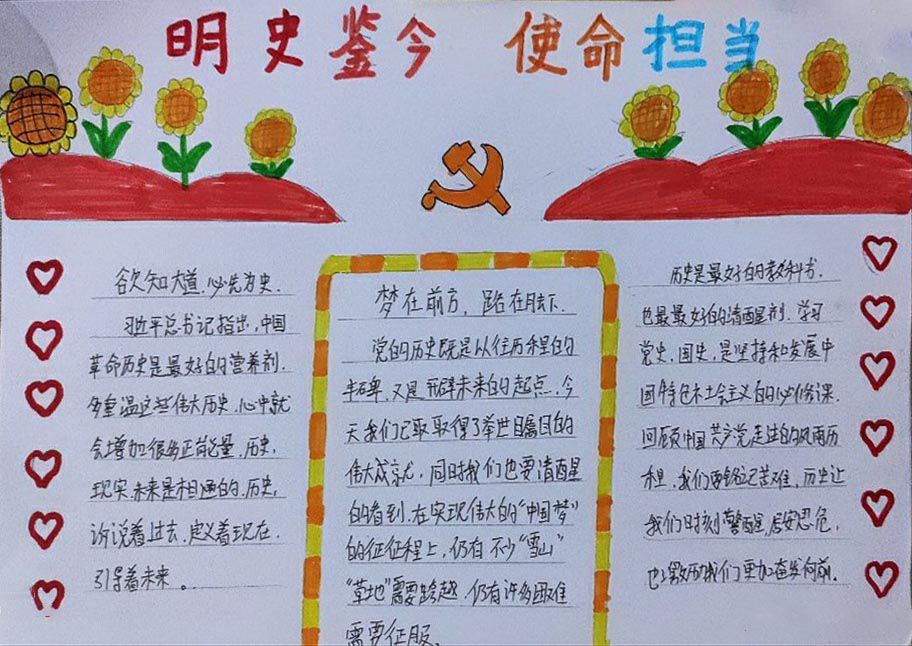 明史鉴今 使命担当
欲知大道,必先为史.
习近平总书记指出,中国
革命历史是最好的营养剂.
多重温这些伟大历史,心中就
会增加很多正能量,历史,
现实,未来是相通的.历史,
诉说着过去,定义着现在.
引导着未来。
梦在前方,路在脚下.
党的历史既是以往历程的
丰碑,又是开辟未来的起点.今
天我们已取取得了举世瞩目的
伟大成就,同时我们也要清醒
的看到.在实现伟大的“中国梦”
的征征程上,仍有不少“雪山”
“草地”需要跨越.仍有许多困难
需要征服、
历史是最好的教科书.
也最最好的清醒剂.学习
党史,国史,是坚持和发展中
国特色社会主义的必修课.
回顾中国共产党走过的风雨历
程,我们要铭记苦难,历史让
我们时刻警醒,居安思危,
也激励我们更加奋发向前.